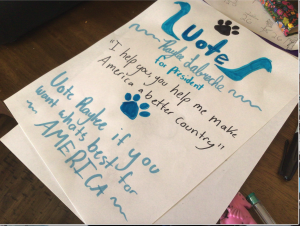 Vote
for president
"I help you, you help me make
America a better country"
Vote Raylee if you
want whats best for
AMERICA